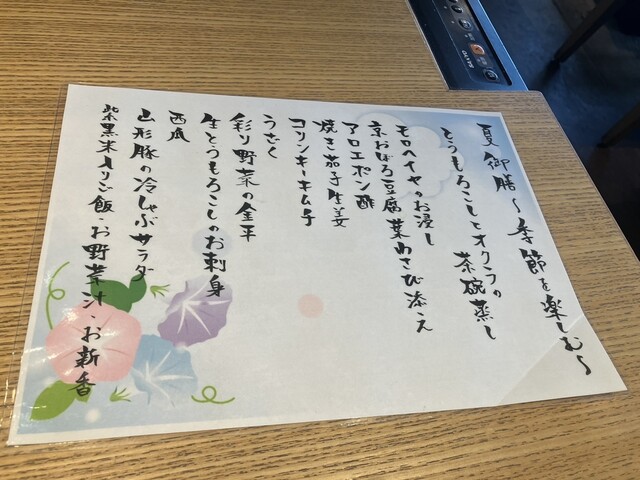 夏御膳～季節を楽しむ～
とうもろこしとオクラの
茶碗蒸し
モロヘイヤのお浸し
京おぼろ豆腐 葉わさび添え
アロエポン酢
焼き茄子生姜
コリンキーキムチ
うざく
彩り野菜の金平
生とうもろこしのお刺身
西瓜
山形豚の冷しゃぶサラダ
紫黒米入りご飯・お野菜汁・お新香